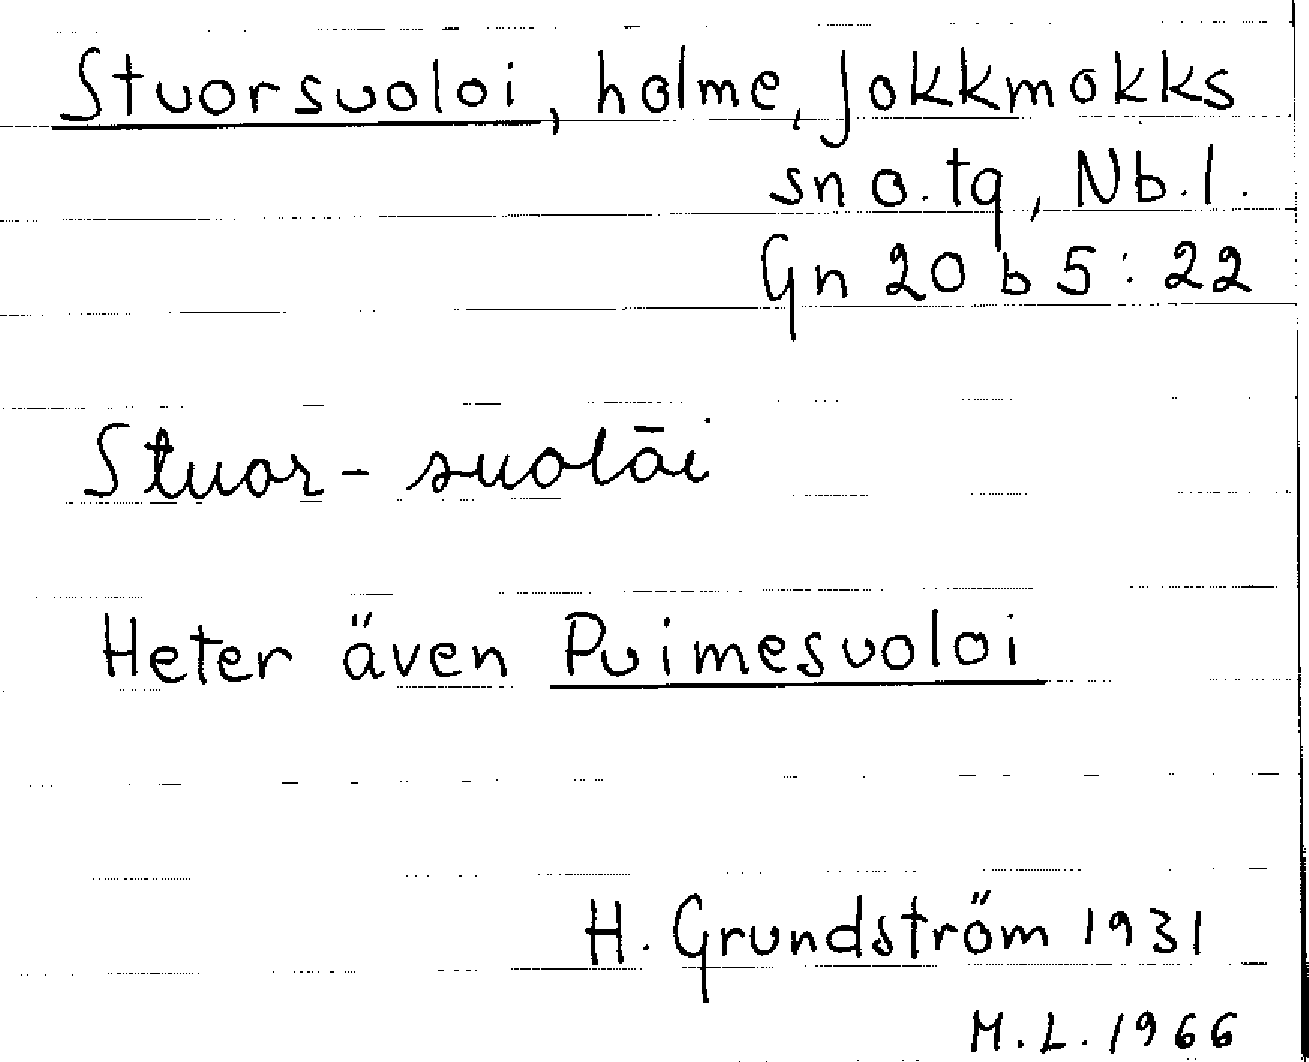 Stuorsuoloi, holme, Jokkmokks
sn o. tg, Nb. l.
Gn 20 b 5 : 22
Stuor - suolāi
Heter även Puimesuoloi
H. Grundström 1931
M. L. 1966